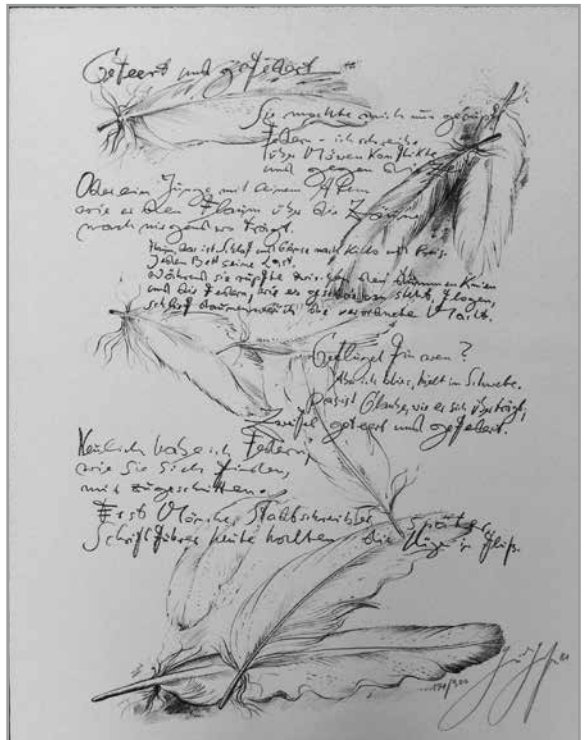 Geteert und gefedert
Sie mochte mich nur gerupft
Federn – ich schreibe
über Möwen Konflikte
und gegen die
Oder ein Junge mit seinem Atem
wie er den Flaum über die Zäune
nach nirgendwo trägt.
Flaum, das ist Schlaf und Gänse nach Kilo und Preis.
Jedem Bett seine Last.
Während sie rupfte zwischen den dummen Knien
und die Federn, wie es geschrieben steht, flogen,
schlief daunenweich die verordnete Macht.
Geflügel für wen?
Aber ich blies, hielt in Schwebe.
Das ist Glaube, wie er sich überträgt;
Zweifel geteert und gefedert.
Neulich habe ich Federn,
wie sie sich finden,
mir zugeschnitten.
Erst Mönche, Stadtschreiber später,
Schriftführer heute halten die Lüge in Fluß.